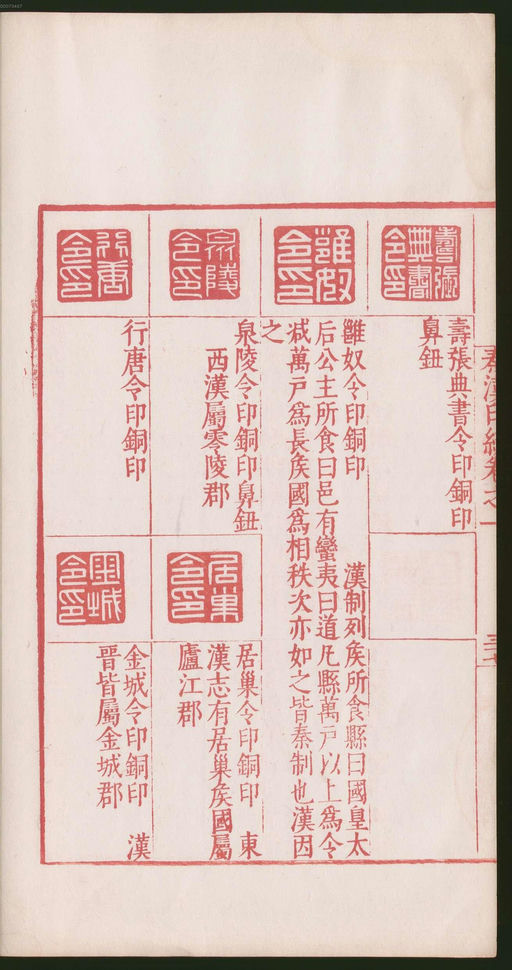 00073467
秦漢印統卷之一
壽張典書令印
壽張典書令印銅印
鼻鈕
雖奴令印
雝奴令印銅印　漢制列矦所食縣曰國皇太
后公主所食曰邑有蠻夷曰道凡縣萬戸以上爲令
减萬戸爲長矦國爲相秩次亦如之皆秦制也漢因
之
泉陵令印
泉陵令印銅印鼻鈕
西漢屬零陵郡
居巢令印
居巢令印銅印　東
漢志有居巢矦國屬
廬江郡
行唐令印
行唐令印銅印
金城令印
金城令印銅印　漢
晋皆屬金城郡